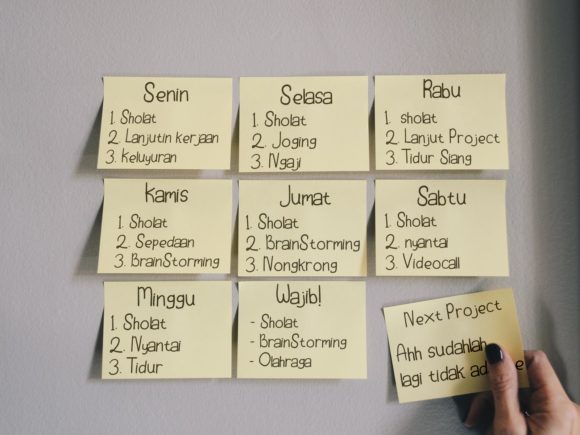 Senin
1. Sholat
2. Lanjutin kerjaan
3. Keluyuran
Selasa
1. Sholat
2. Joging
3. Ngaji
Rabu
1. sholat
2. Lanjut Project
3. Tidur Siang
Kamis
1. Sholat
2. Sepedaan
3. BrainStorming
Jumat
1. Sholat
2. BrainStorming
3. Nongkrong
Sabtu
1. Sholat
2. nyantai
3. Videocall
Minggu
1. Sholat
2. Nyantai
3. Tidur
Wajib!
- Sholat
- BrainStorming
- Olahraga
Next Project
Ahh sudahlah
lagi tidak